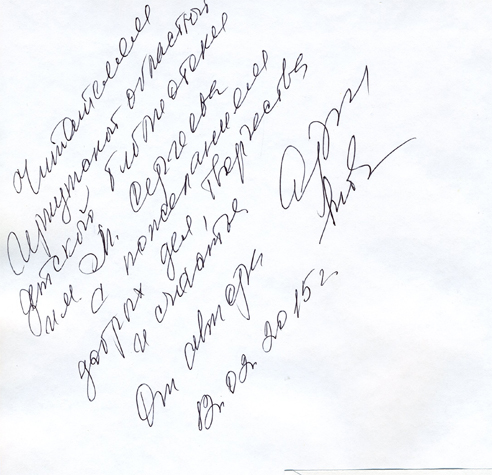 Читателям
Иркутской областной
детской библиотеки
им. М. Сергеева
с пожеланием
добрых дел, творчества
и счастья
От автера
12.02.2015г.